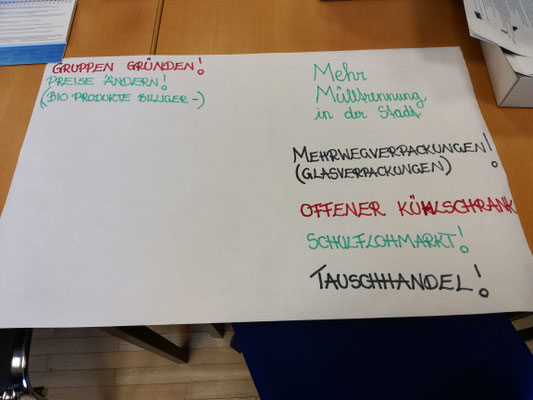 GRUPPEN GRÜNDEN!
PREISE ÄNDERN!
(BIO PRODUKTE BILLIGER -)
Mehr
Mülltrennung
in der Stadt
MEHRWEGVERPACKUNGEN!
(GLASVERPACKUNGEN)
OFFENER KÜHLSCHRANK
SCHULFLOHMARKT!
TAUSCHHANDEL!